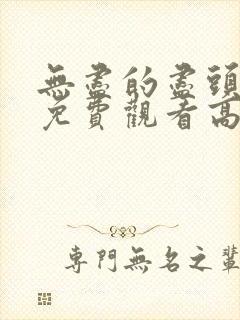 無盡的盡頭
免費觀看高
專門無名之輩